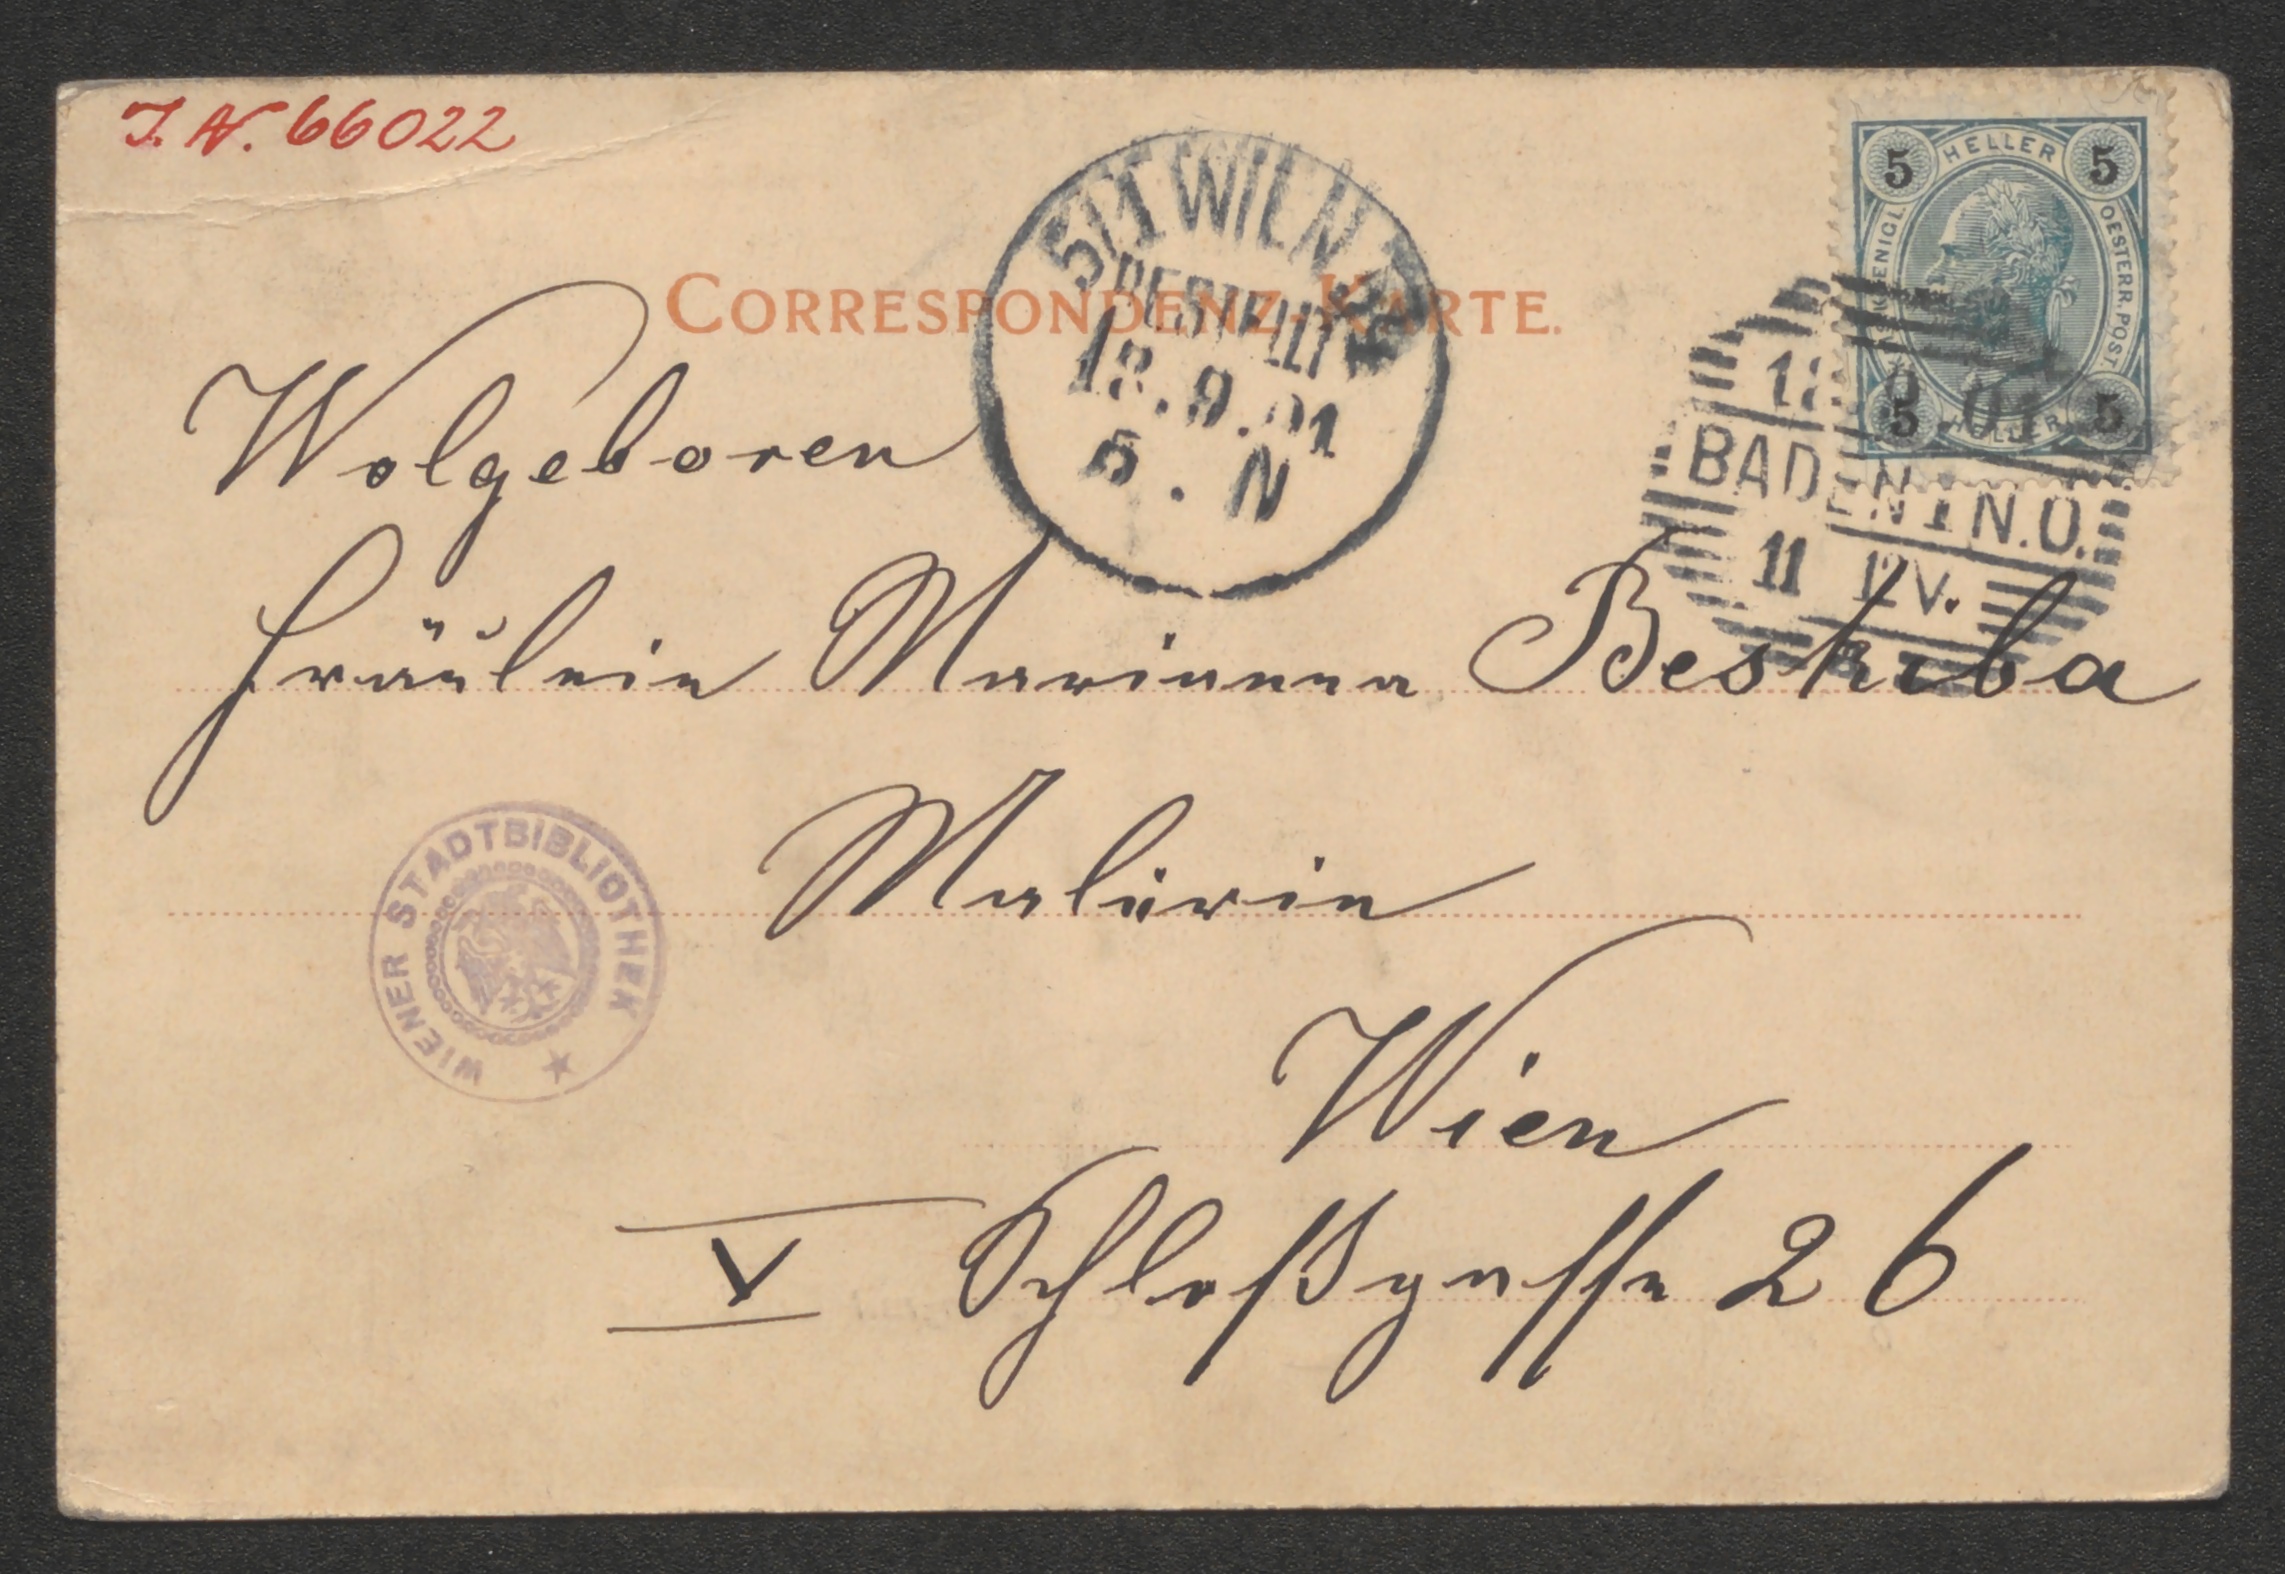 J. N. 66022
5 HELLER 5
KAIS. KOENIGL. OESTERR. POST
5 HELLER 5
CORRESPONDENZ-KARTE.
5/1 WIEN
BESTELLT
18. 9. 01
5. N
18 9 01
BADEN 1 N.Ö.
11 12 V.
Wolgeboren
Fräulein Marianna Beskiba
Malerin
WIENER STADTBIBLIOTHEK
Wien
V Schloßgasse 26